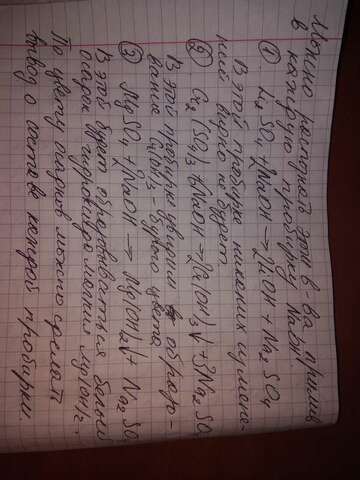 Можно распознать эти в-ва прилив
в каждую пробирку NaOH.
① Li₂SO₄ + 2NaOH → 2LiOH + Na₂SO₄
В этой пробирке никаких измене-
ний видно не будет.
② Cr₂(SO₄)₃ + 6NaOH → 2Cr(OH)₃↓ + 3Na₂SO₄
В этой пробирке увидим образо-
вание Cr(OH)₃ - бурого цвета
③ MgSO₄ + 2NaOH → Mg(OH)₂↓ + Na₂SO₄
В этой будет образовываться белый
осадок гидроксида магния Mg(OH)₂.
По цвету осадков можно сделать
вывод о составе каждой пробирки.